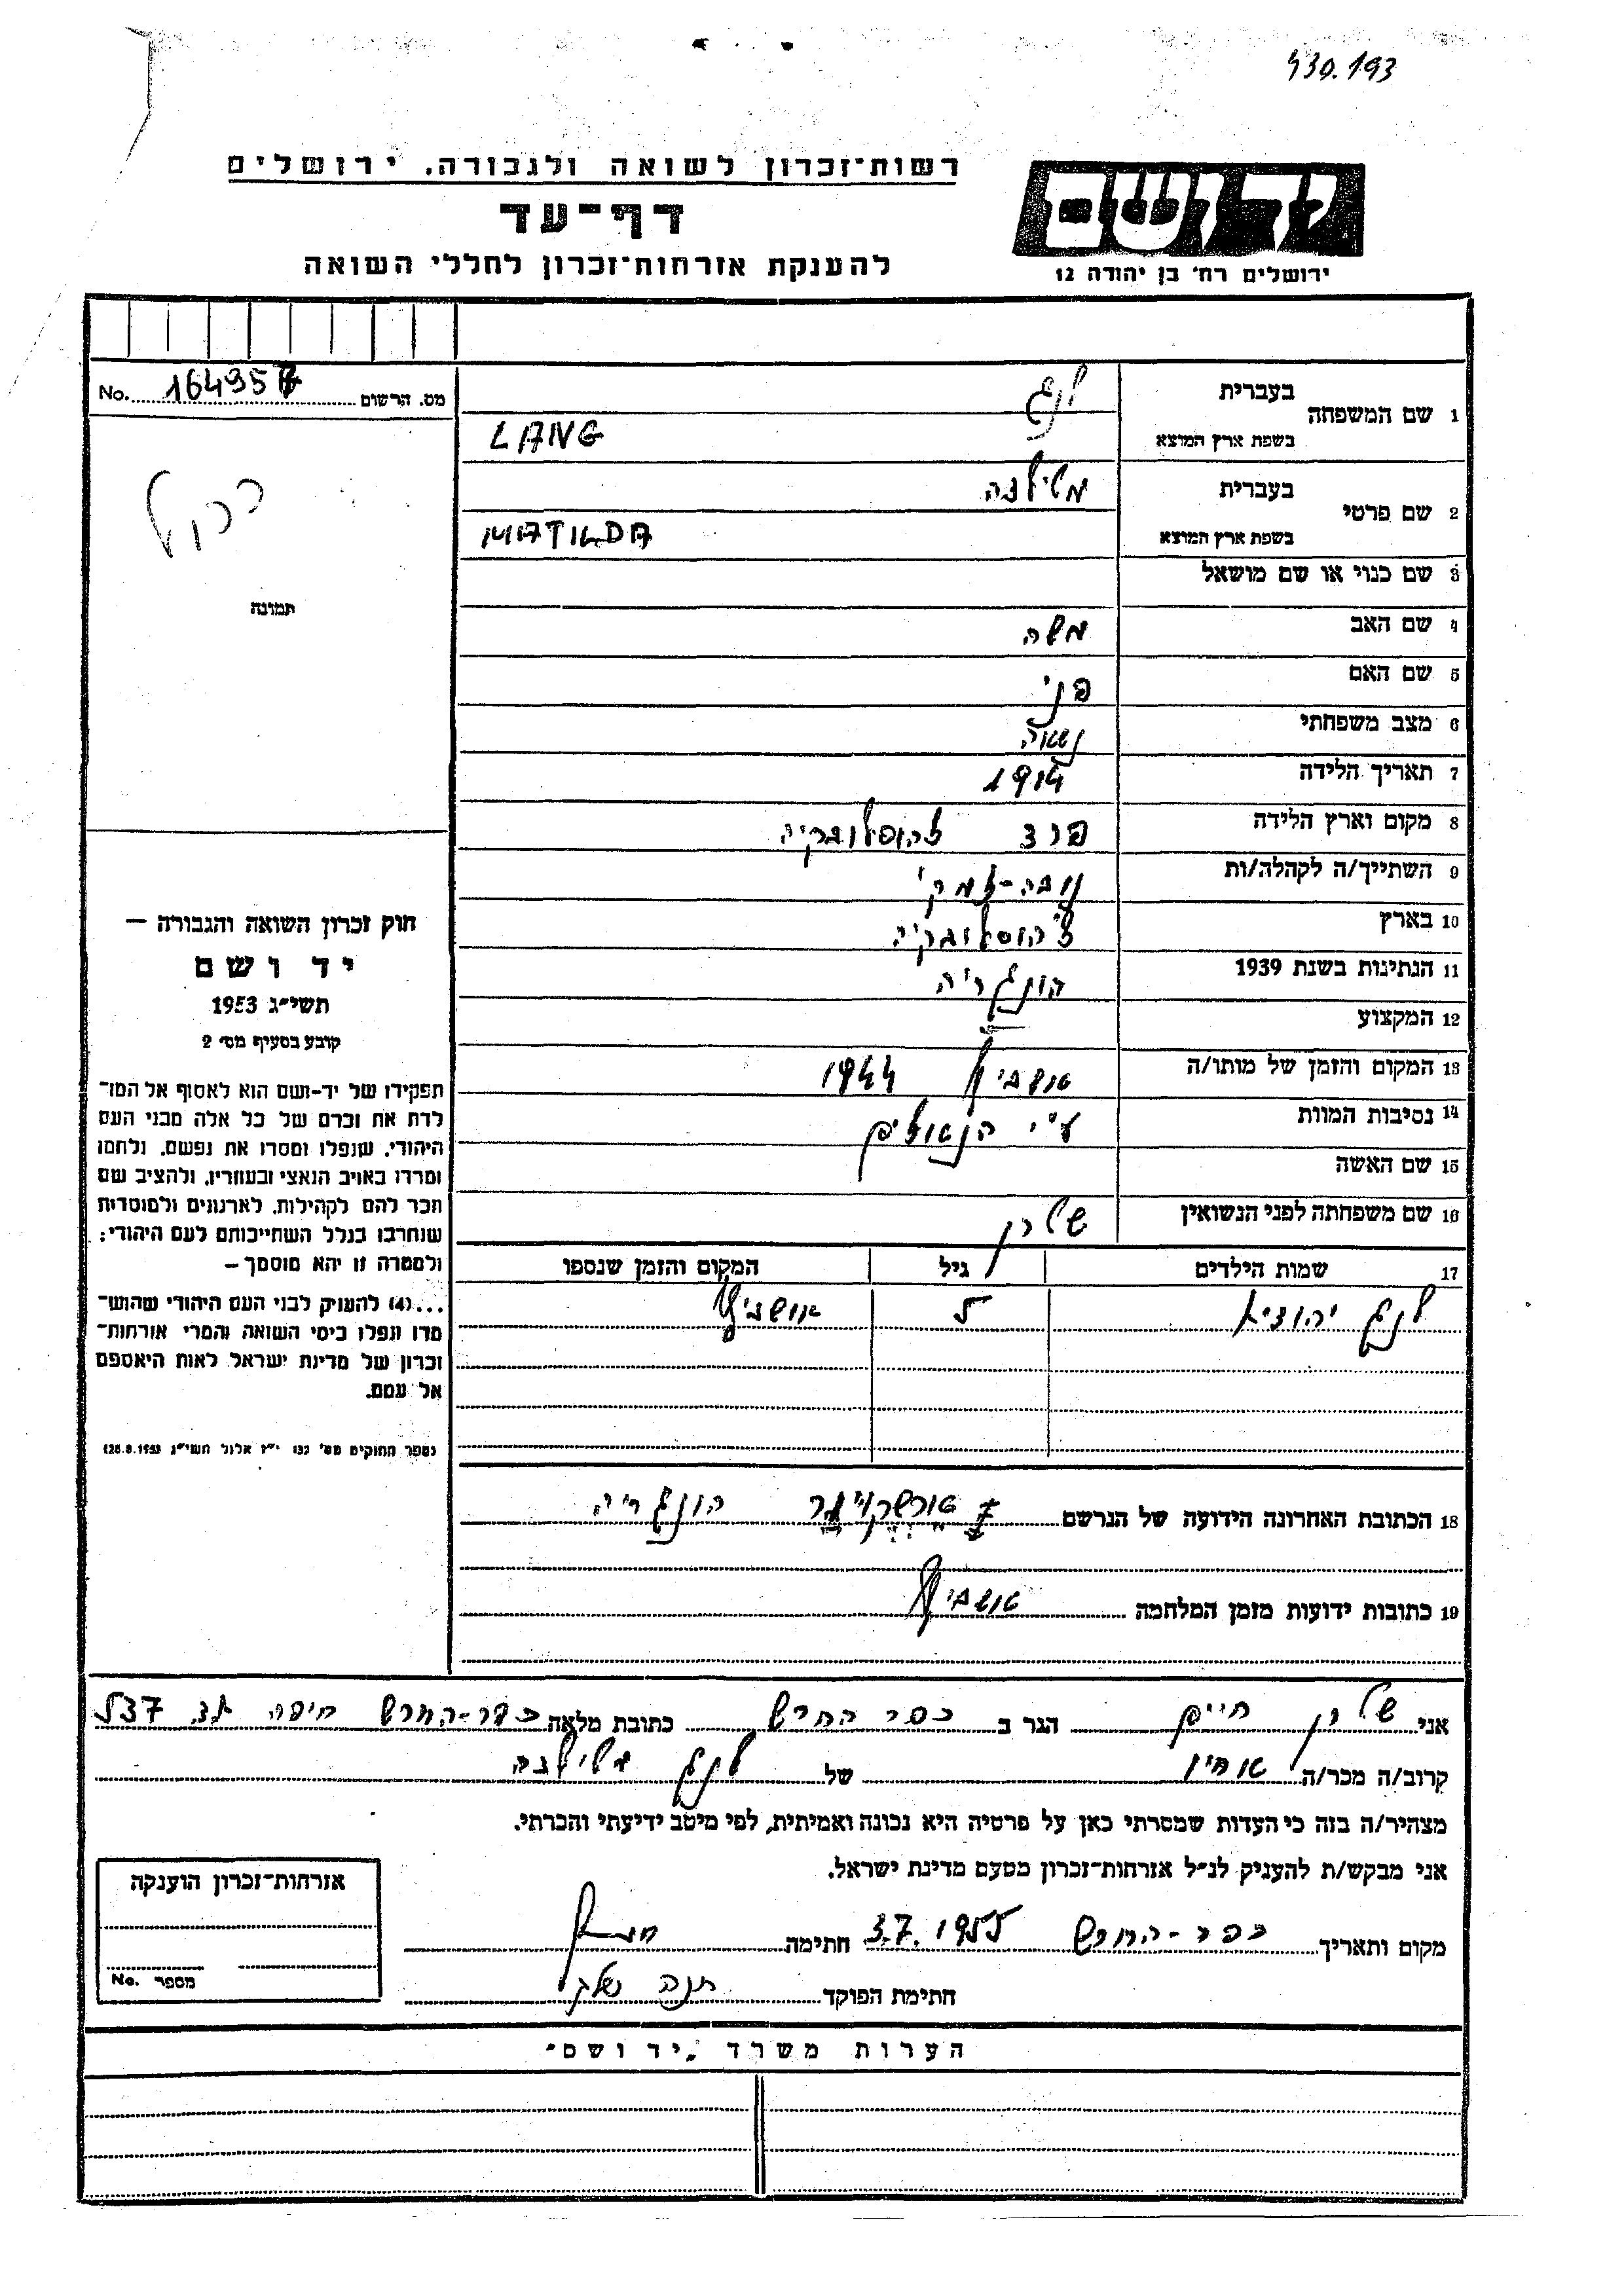 430.193
רשות־זכרון לשואה ולגבורה, ירושלים
דף־עד
להענקת אזרחות־זכרון לחללי השואה
ידושם
ירושלים רח׳ בן יהודה 12
מס. הרשום No.
1 שם המשפחה בעברית לנג
בשפת ארץ המוצא LANG
2 שם פרטי בעברית מטילדה
בשפת ארץ המוצא MATILDA
3 שם כנוי או שם מושאל
4 שם האב משה
5 שם האם פני
6 מצב משפחתי נשואה
7 תאריך הלידה 1914
8 מקום וארץ הלידה
9 השתייך/ה לקהלה/ות נובה-זמקי
10 בארץ צ'כוסלובקיה
11 הנתינות בשנת 1939 הונגריה
12 המקצוע
13 המקום והזמן של מותו/ה 1944
14 נסיבות המוות ע"י הנאצים
15 שם האשה
16 שם משפחתה לפני הנשואין
17 שמות הילדים גיל המקום והזמן שנספו
לנג יהודיא 5
18 הכתובת האחרונה הידועה של הנרשם הונגריה
19 כתובות ידועות מזמן המלחמה
תמונה
חוק זכרון השואה והגבורה —
יד ושם
תשי״ג 1953
קובע בסעיף מס׳ 2
תפקידו של יד-ושם הוא לאסוף אל המו־
לדת את זכרם של כל אלה מבני העם
היהודי, שנפלו ומסרו את נפשם, נלחמו
ומרדו באויב הנאצי ובעוזריו, ולהציב שם
וזכר להם לקהילות, לארגונים ולמוסדות
שנחרבו בגלל השתייכותם לעם היהודי;
ולמטרה זו יהא מוסמך —
...(4) להעניק לבני העם היהודי שהוש־
מדו ונפלו בימי השואה והמרי אזרחות־
זכרון של מדינת ישראל לאות היאספם
אל עמם.
(ספר החוקים מס׳ 132 י״ז אלול תשי״ג 28.8.1953)
אני חיים הגר ב כפר החרש כתובת מלאה כפר-החרש חיפה 537
קרוב/ה מכר/ה של לנג מטילדה
מצהיר/ה בזה כי העדות שמסרתי כאן על פרטיה היא נכונה ואמיתית, לפי מיטב ידיעתי והכרתי.
אני מבקש/ת להעניק לנ״ל אזרחות־זכרון מטעם מדינת ישראל.
מקום ותאריך כפר-החרש 3.7.1955 חתימה
חתימת הפוקד
אזרחות־זכרון הוענקה
מספר No.
הערות משרד „יד ושם״